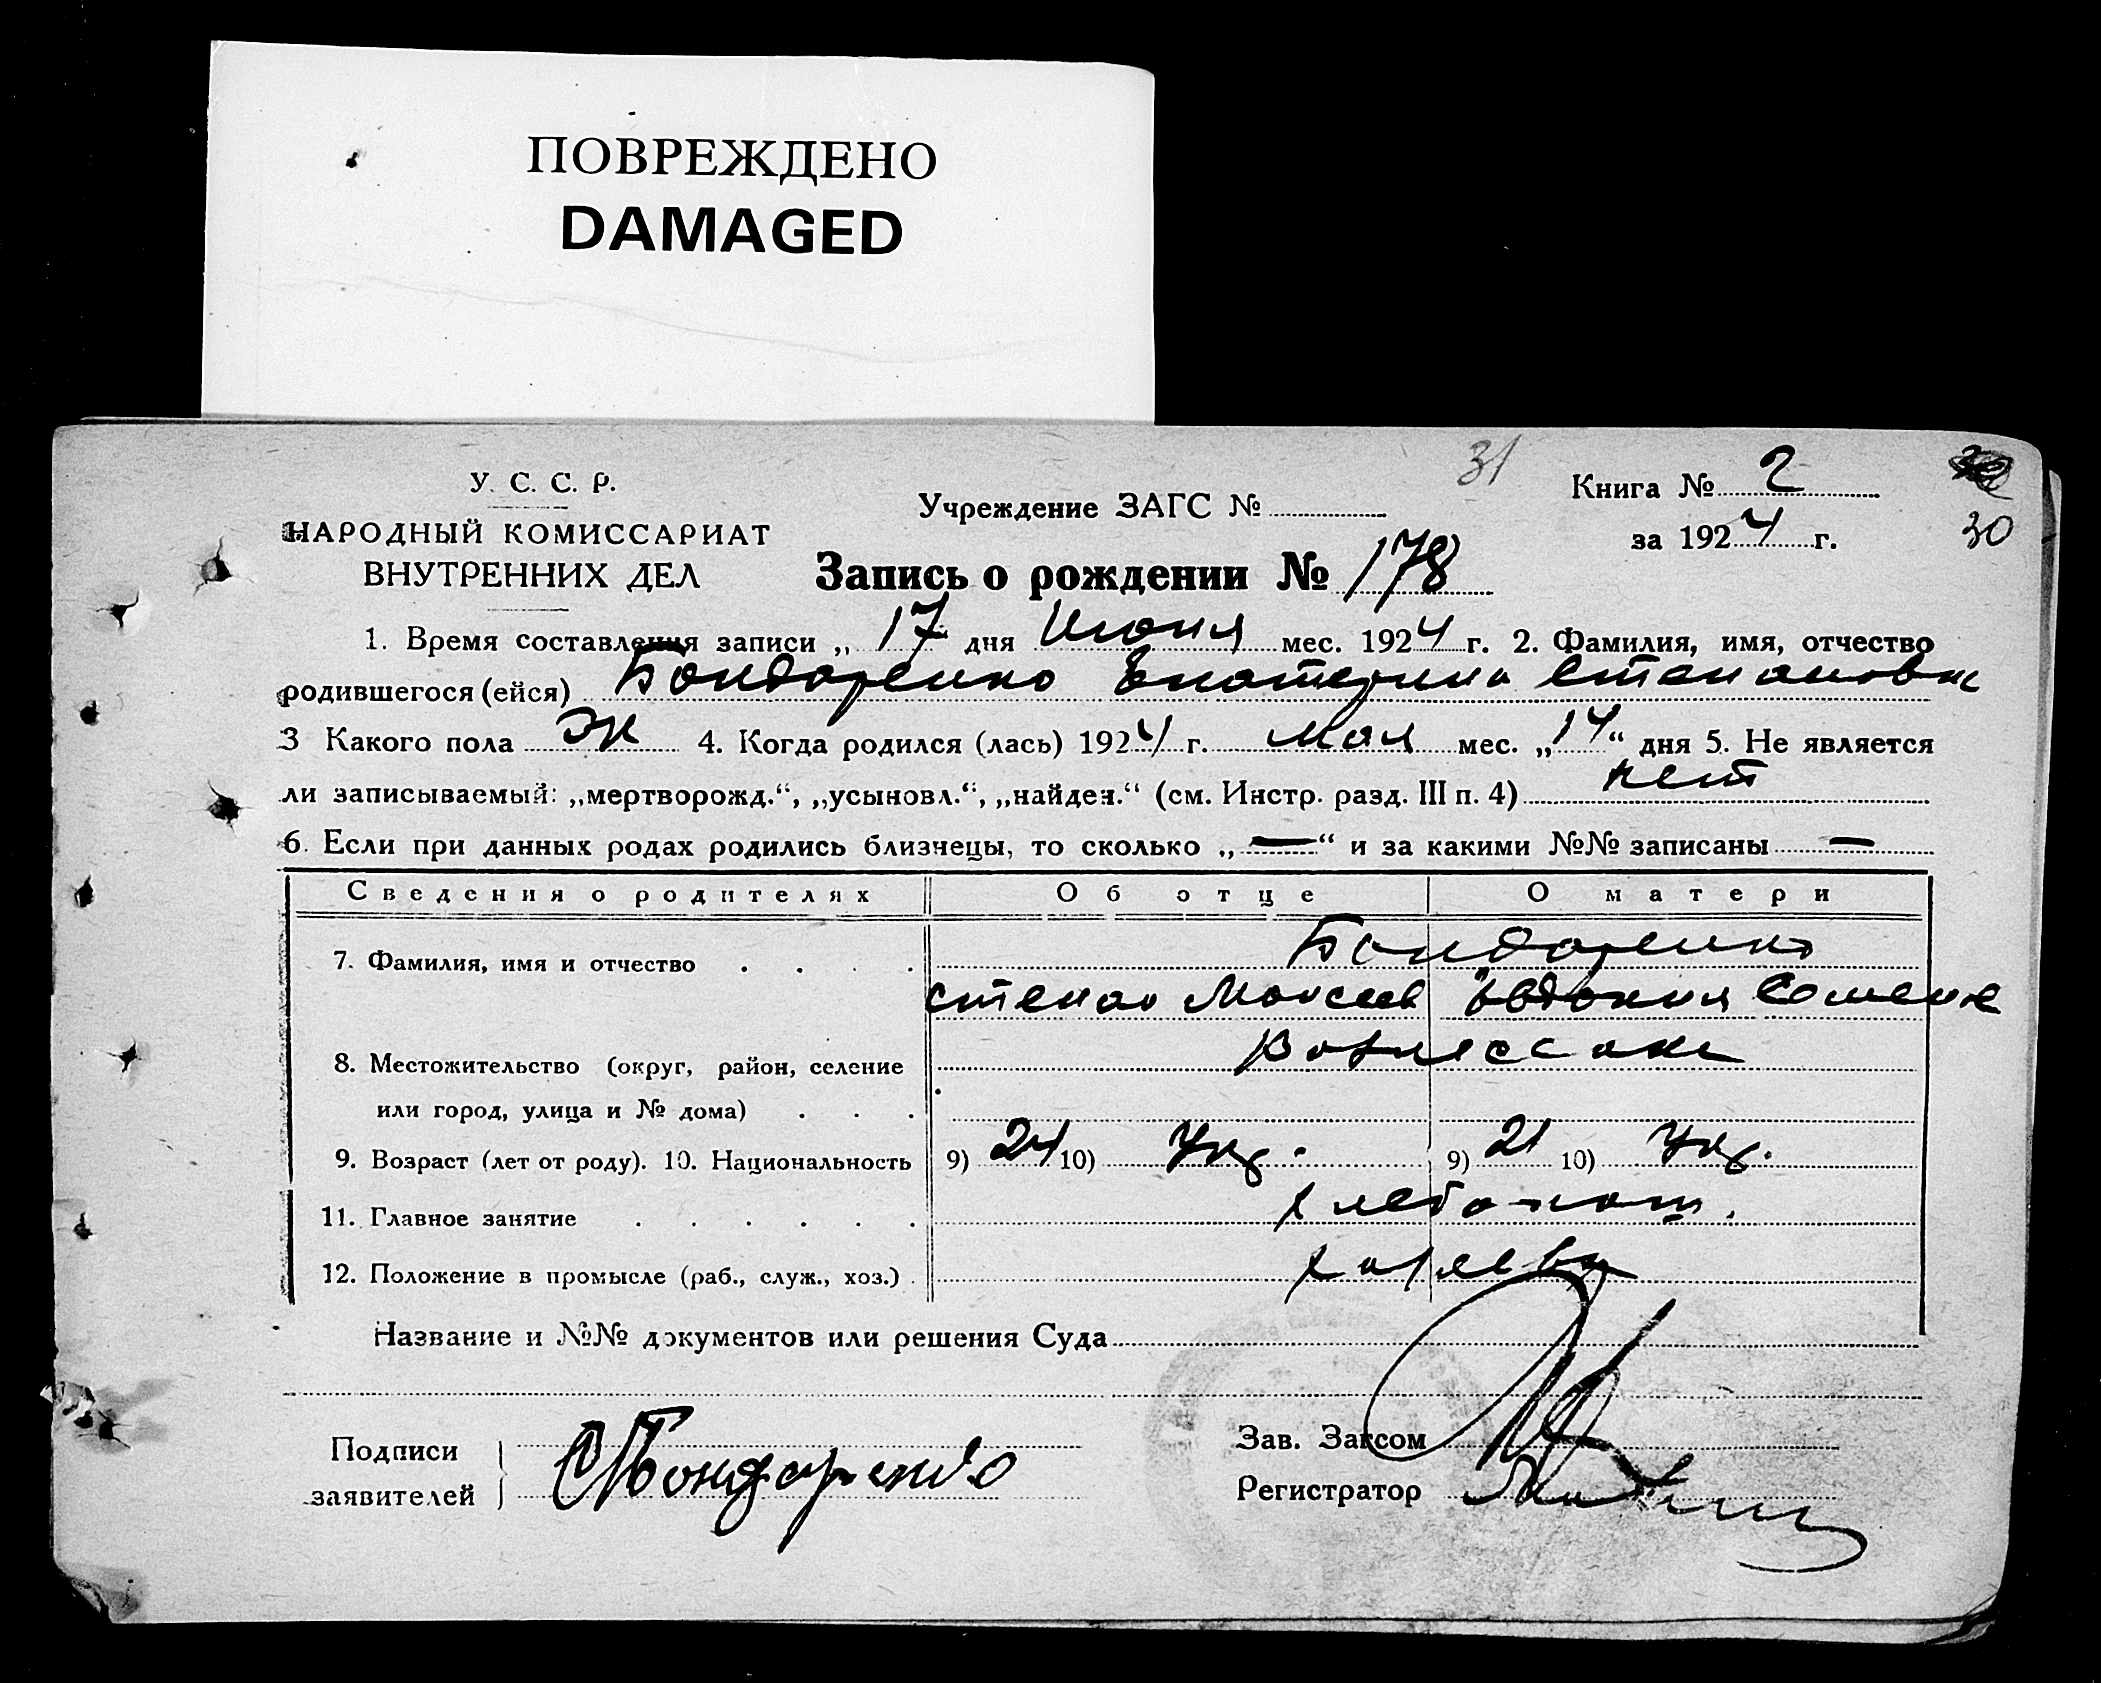 ПОВРЕЖДЕНО
DAMAGED
У. С. С. Р.
НАРОДНЫЙ КОМИССАРИАТ
ВНУТРЕННИХ ДЕЛ
Учреждение ЗАГС №
31
Книга № 2
за 1924 г.
30
Запись о рождении № 178
1. Время составления записи „ 17 дня Июня мес. 1924 г. 2. Фамилия, имя, отчество
родившегося (ейся) Бондаренко Екатерина Степановна
3 Какого пола ж 4. Когда родился (лась) 1924 г. мая мес. „14“ дня 5. Не является
ли записываемый: „мертворожд.“, „усыновл.“, „найден.“ (см. Инстр. разд. III п. 4) нет
6. Если при данных родах родились близнецы, то сколько „—“ и за какими №№ записаны —
Сведения о родителях Об отце О матери
7. Фамилия, имя и отчество . . . . Бондаренко
Степан Моисеев Евдокия Семен
8. Местожительство (округ, район, селение
или город, улица и № дома) . . .
9. Возраст (лет от роду). 10. Национальность 9) 24 10) Укр. 9) 21 10) Укр.
11. Главное занятие . . . . . . хлебопаш.
12. Положение в промысле (раб., служ., хоз.) .
Название и №№ документов или решения Суда
Подписи
заявителей
СБондаренко
Зав. Загсом
Регистратор